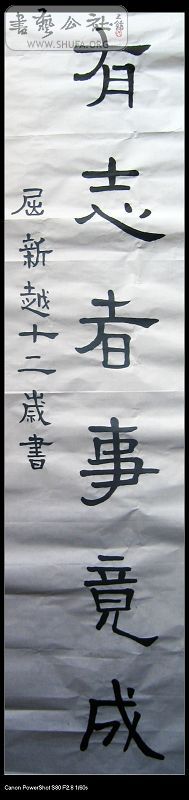 書藝公社
WWW.SHUFA.ORG
有志者事竟成
屈新越十二歲書
Canon PowerShot S80 F/2.8 1/60s